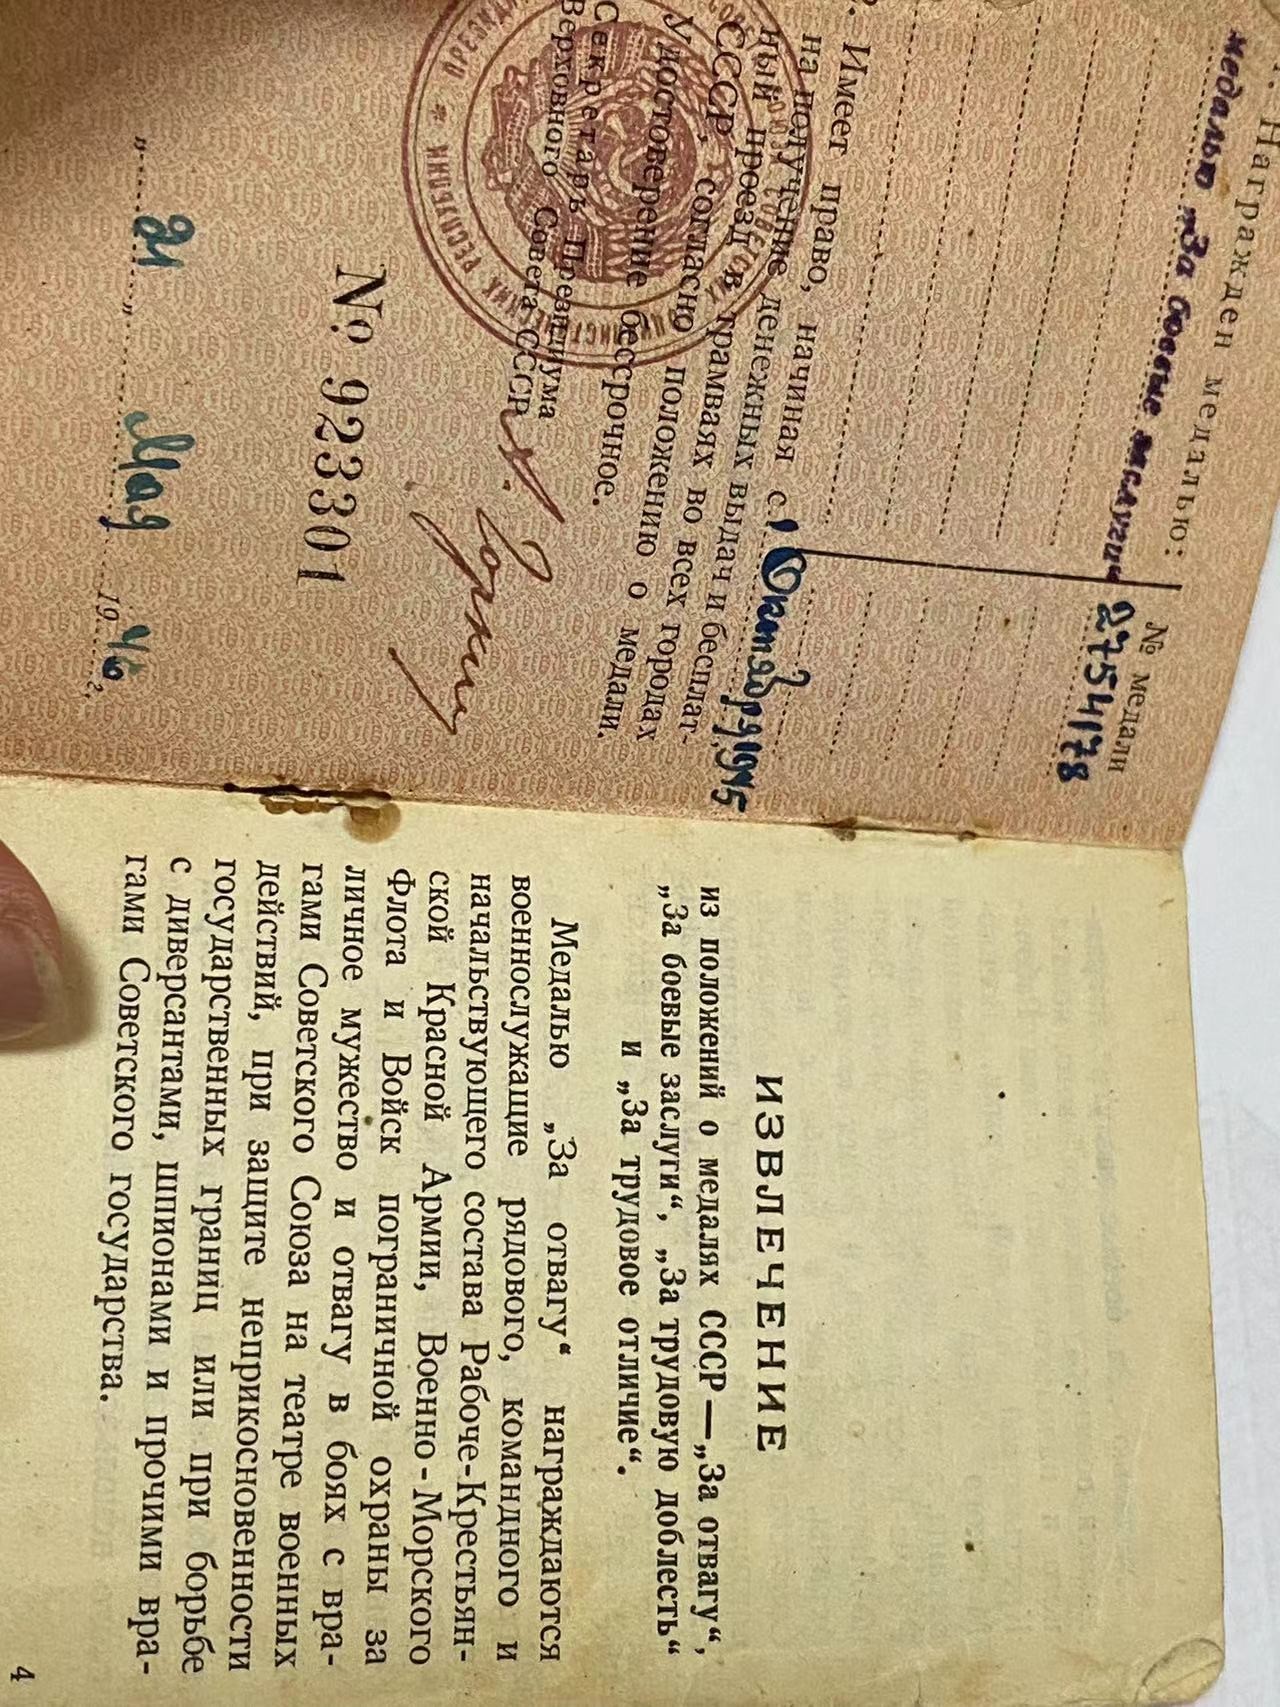 Награжден медалью:
№ медали
медалью „За боевые заслуги“
2754178
Имеет право, начиная с 1 Октября 1945
на получение денежных выдач и бесплат-
ный проезд в трамваях во всех городах
СССР, согласно положению о медали.
Удостоверение бессрочное.
Секретарь Президиума
Верховного Совета СССР
А. Горкин
№ 923301
„21“ Мая 1946 г.
ИЗВЛЕЧЕНИЕ
из положений о медалях СССР—„За отвагу“,
„За боевые заслуги“, „За трудовую доблесть“
и „За трудовое отличие“.
Медалью „За отвагу“ награждаются
военнослужащие рядового, командного и
начальствующего состава Рабоче-Крестьян-
ской Красной Армии, Военно-Морского
Флота и Войск пограничной охраны за
личное мужество и отвагу в боях с вра-
гами Советского Союза на театре военных
действий, при защите неприкосновенности
государственных границ или при борьбе
с диверсантами, шпионами и прочими вра-
гами Советского государства.
4